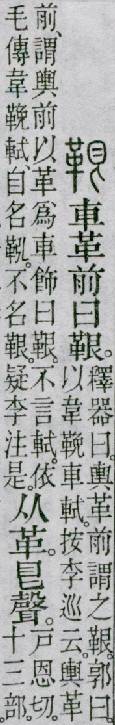 鞎車革前曰鞎。
釋器曰。輿革前謂之鞎。郭曰
以韋鞔車軾。按李巡云。輿革
前、謂輿前以革爲車飾曰鞎。不言軾。依
毛傳韋鞔軾自名鞃。不名鞎。疑李注是。
从革。𥃩聲。
戶恩切。
十三部。